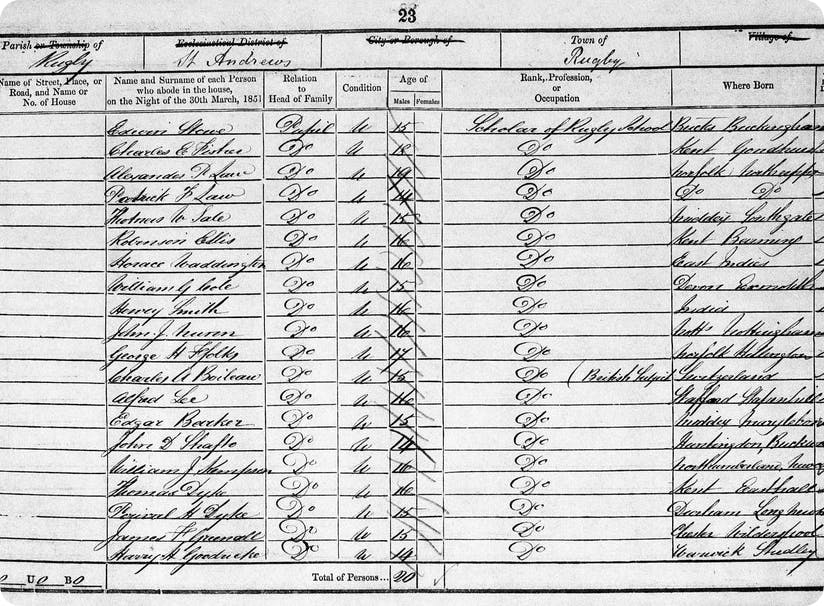 23
Parish or Township of Rugby
Ecclesiastical District of St Andrews
City or Borough of
Town of Rugby
Village of
Name of Street, Place, or Road, and Name or No. of House
Name and Surname of each Person who abode in the house, on the Night of the 30th March, 1851
Relation to Head of Family
Condition
Age of Males Females
Rank, Profession, or Occupation
Where Born
Edwin Stowe Pupil U 15 Scholar of Rugby School Bucks Buckingham
Charles E Fisher Do U 18 Do Kent Goudhurst
Alexander P Law Do U 19 Do Norfolk
Patrick F Law Do U 14 Do Do Do
Thomas W Tale Do U 15 Do Middx Southgate
Robinson Ellis Do U 16 Do Kent Barming
Horace Waddington Do U 16 Do East Indies
William G Cole Do U 15 Do Devon Exmouth
Henry Smith Do U 16 Do India
John J Do U 16 Do Notts Nottingham
George H Ffolkes Do U 17 Do Norfolk Hillington
Charles A Boileau Do U 15 Do (British Subject Switzerland
Alfred Lee Do U 16 Do Stafford
Edgar Barker Do U 15 Do Middx Marylebone
John D Shafto Do U 14 Do Huntingdon, Buckworth
William J Kempson Do U 16 Do Northumberland,
Thomas Dyke Do U 16 Do Kent
Percival H Dyke Do U 15 Do Durham Long
James F Greenall Do U 15 Do Chester Wilderspool
Harry H Goodricke Do U 14 Do Warwick Studley
U 0 B 0 Total of Persons... 20